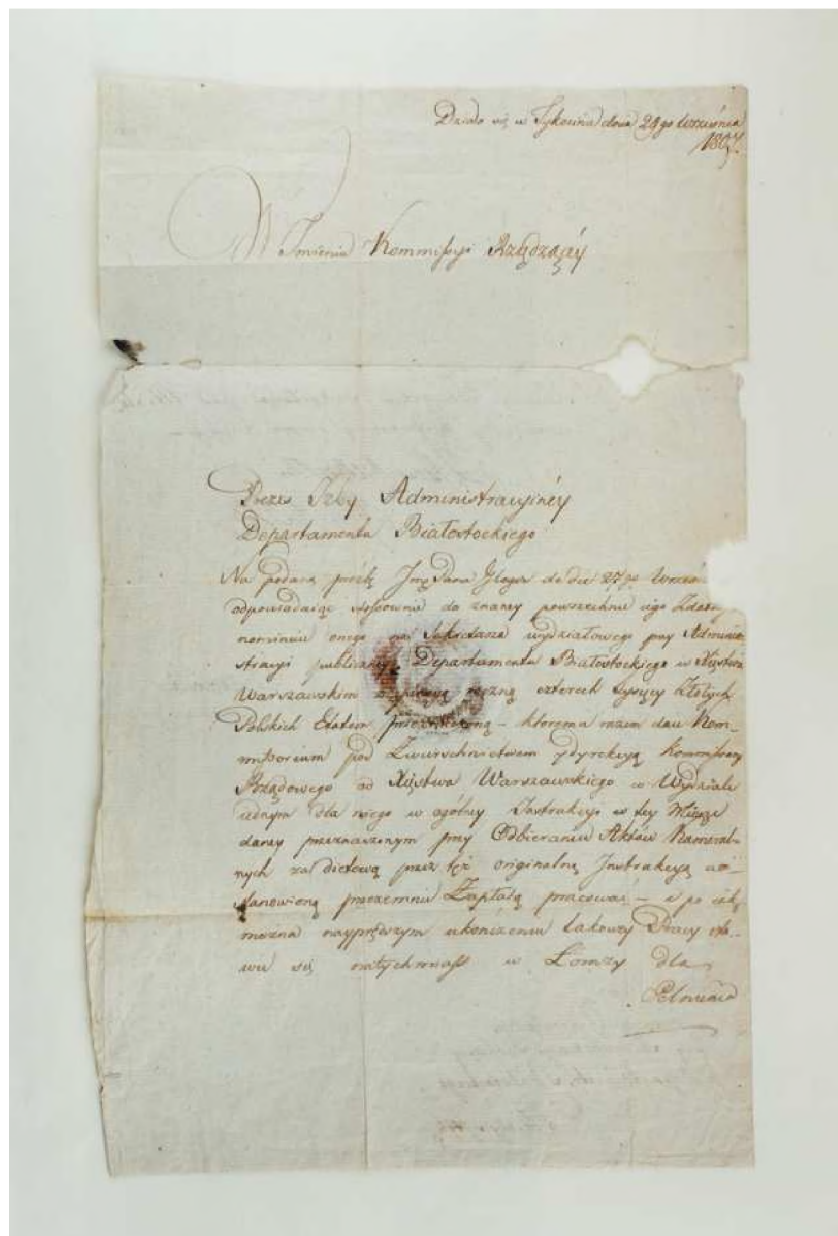 Działo się w Tykocinie dnia 29go Września
1807.
W Imieniu Kommissyi Rządzącéy
Prezes Izby Administracyinéy
Departamentu Białostockiego
Na podaną prośbę Jmć Pana Glogera de die 27go Wrześ
odpowiadaiąc stosownie do znaney powszechnie iego Zdatn
nominuie onego na Sekretarza wydziałowego przy Admini-
stracyi publiczney Departamentu Białostockiego w Xięstwie
Warszawskim z pensyą roczną czterech tysięcy Złotych
Polskich Etatem przeznaczoną – któremu razem daie Kom-
missorium pod Zwierzchnictwem y dyrekcyą Kommissarza
Rządowego od Xięstwa Warszawskiego w Wydziale
iednym dla niego w ogólney Instrukcyi w tey Mierze
daney przeznaczonym przy Odbieraniu Aktów Kameral-
nych za dietową przez też originalną Instrukcyą u-
stanowioną przezemnie Zapłatą pracować – a po iak
można nayprędszym ukończeniu takowey Pracy sta-
wić się natychmiast w Łomży dla
Pełnienia